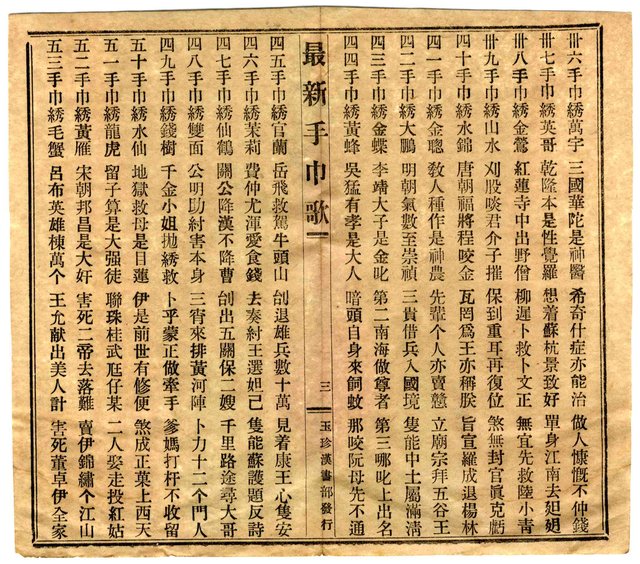 卅六手巾綉萬字 三國華陀是神醫 希奇什症亦能治 做人慷慨不仲錢
卅七手巾綉英哥 乾隆本是性覺羅 想着蘇杭景致好 單身江南去𨑨迌
卅八手巾綉金鶯 紅蓮寺中出野僧 柳遲卜救卜文正 無宜先救陸小青
卅九手巾綉山水 刈股啖君介子推 保到重耳再復位 煞無封官眞克虧
四十手巾綉水錦 唐朝福將程咬金 瓦罔爲王亦稱朕 旨宣羅成退楊林
四一手巾綉金聰 敎人種作是神農 先輩个人亦賣戆 立廟宗拜五谷王
四二手巾綉大鵬 明朝氣數至崇禎 三貴借兵入國境 隻能中土屬滿清
四三手巾綉金蝶 李靖大子是金叱 第二南海做尊者 第三哪叱上出名
四四手巾綉黃蜂 吳猛有孝是大人 暗頭自身來飼蚊 那咬阮母先不通
最新手巾歌 三 玉珍漢書部發行
四五手巾綉官蘭 岳飛救駕牛頭山 刣退雄兵數十萬 見着康王心隻安
四六手巾綉茉莉 費仲尤渾愛食錢 去奏紂王選妲己 隻能蘇護題反詩
四七手巾綉仙鶴 關公降漢不降曹 刣出五關保二嫂 千里路途尋大哥
四八手巾綉雙面 公明助紂害本身 三霄來排黃河陣 卜力十二个門人
四九手巾綉錢樹 千金小姐拋綉救 卜乎蒙正做牽手 爹媽打杆不收留
五十手巾綉水仙 地獄救母是目蓮 伊是前世有修便 煞成正菓上西天
五一手巾綉龍虎 留子算是大强徒 聯珠桂武尫仔某 二人娶走投紅姑
五二手巾綉黃雁 宋朝邦昌是大奸 害死二帝去落難 賣伊錦繡个江山
五三手巾綉毛蟹 呂布英雄棟萬个 王允献出美人計 害死董卓伊全家